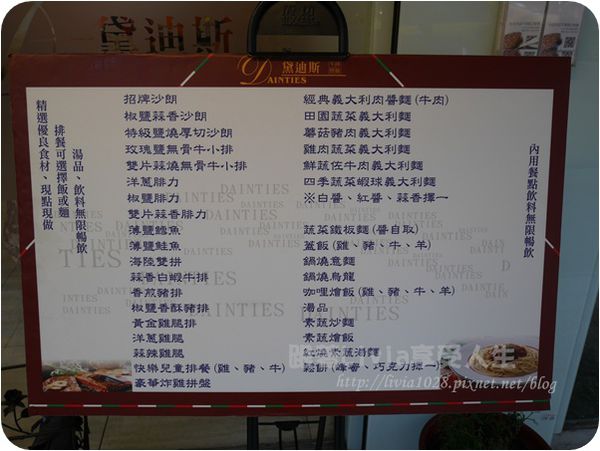 黛迪斯
黛迪斯
DAINTIES
精選優良食材、現點現做
排餐可選擇飯或麵
湯品、飲料無限暢飲
招牌沙朗
椒鹽蒜香沙朗
特級鹽燒厚切沙朗
玫瑰鹽無骨牛小排
雙片蒜燒無骨牛小排
洋蔥腓力
椒鹽腓力
雙片蒜香腓力
薄鹽鱈魚
薄鹽鮭魚
海陸雙拼
蒜香白蝦牛排
香煎豬排
椒鹽香酥豬排
黃金雞腿排
洋蔥雞腿
蒜辣雞腿
快樂兒童排餐(雞、豬、牛)
豪華炸雞拼盤
經典義大利肉醬麵(牛肉)
田園蔬菜義大利麵
蘑菇豬肉義大利麵
雞肉蔬菜義大利麵
鮮蔬佐牛肉義大利麵
四季蔬菜蝦球義大利麵
※白醬、紅醬、蒜香擇一
蔬菜鐵板麵(醬自取)
蓋飯(雞、豬、牛、羊)
鍋燒意麵
鍋燒烏龍
咖哩燴飯(雞、豬、牛、羊)
湯品
素蔬炒麵
素蔬燴飯
紅燒素蔬湯麵
鬆餅(蜂蜜、巧克力擇一)
內用餐點飲料無限暢飲
享受人生
http://livia1028.pixnet.net/blog